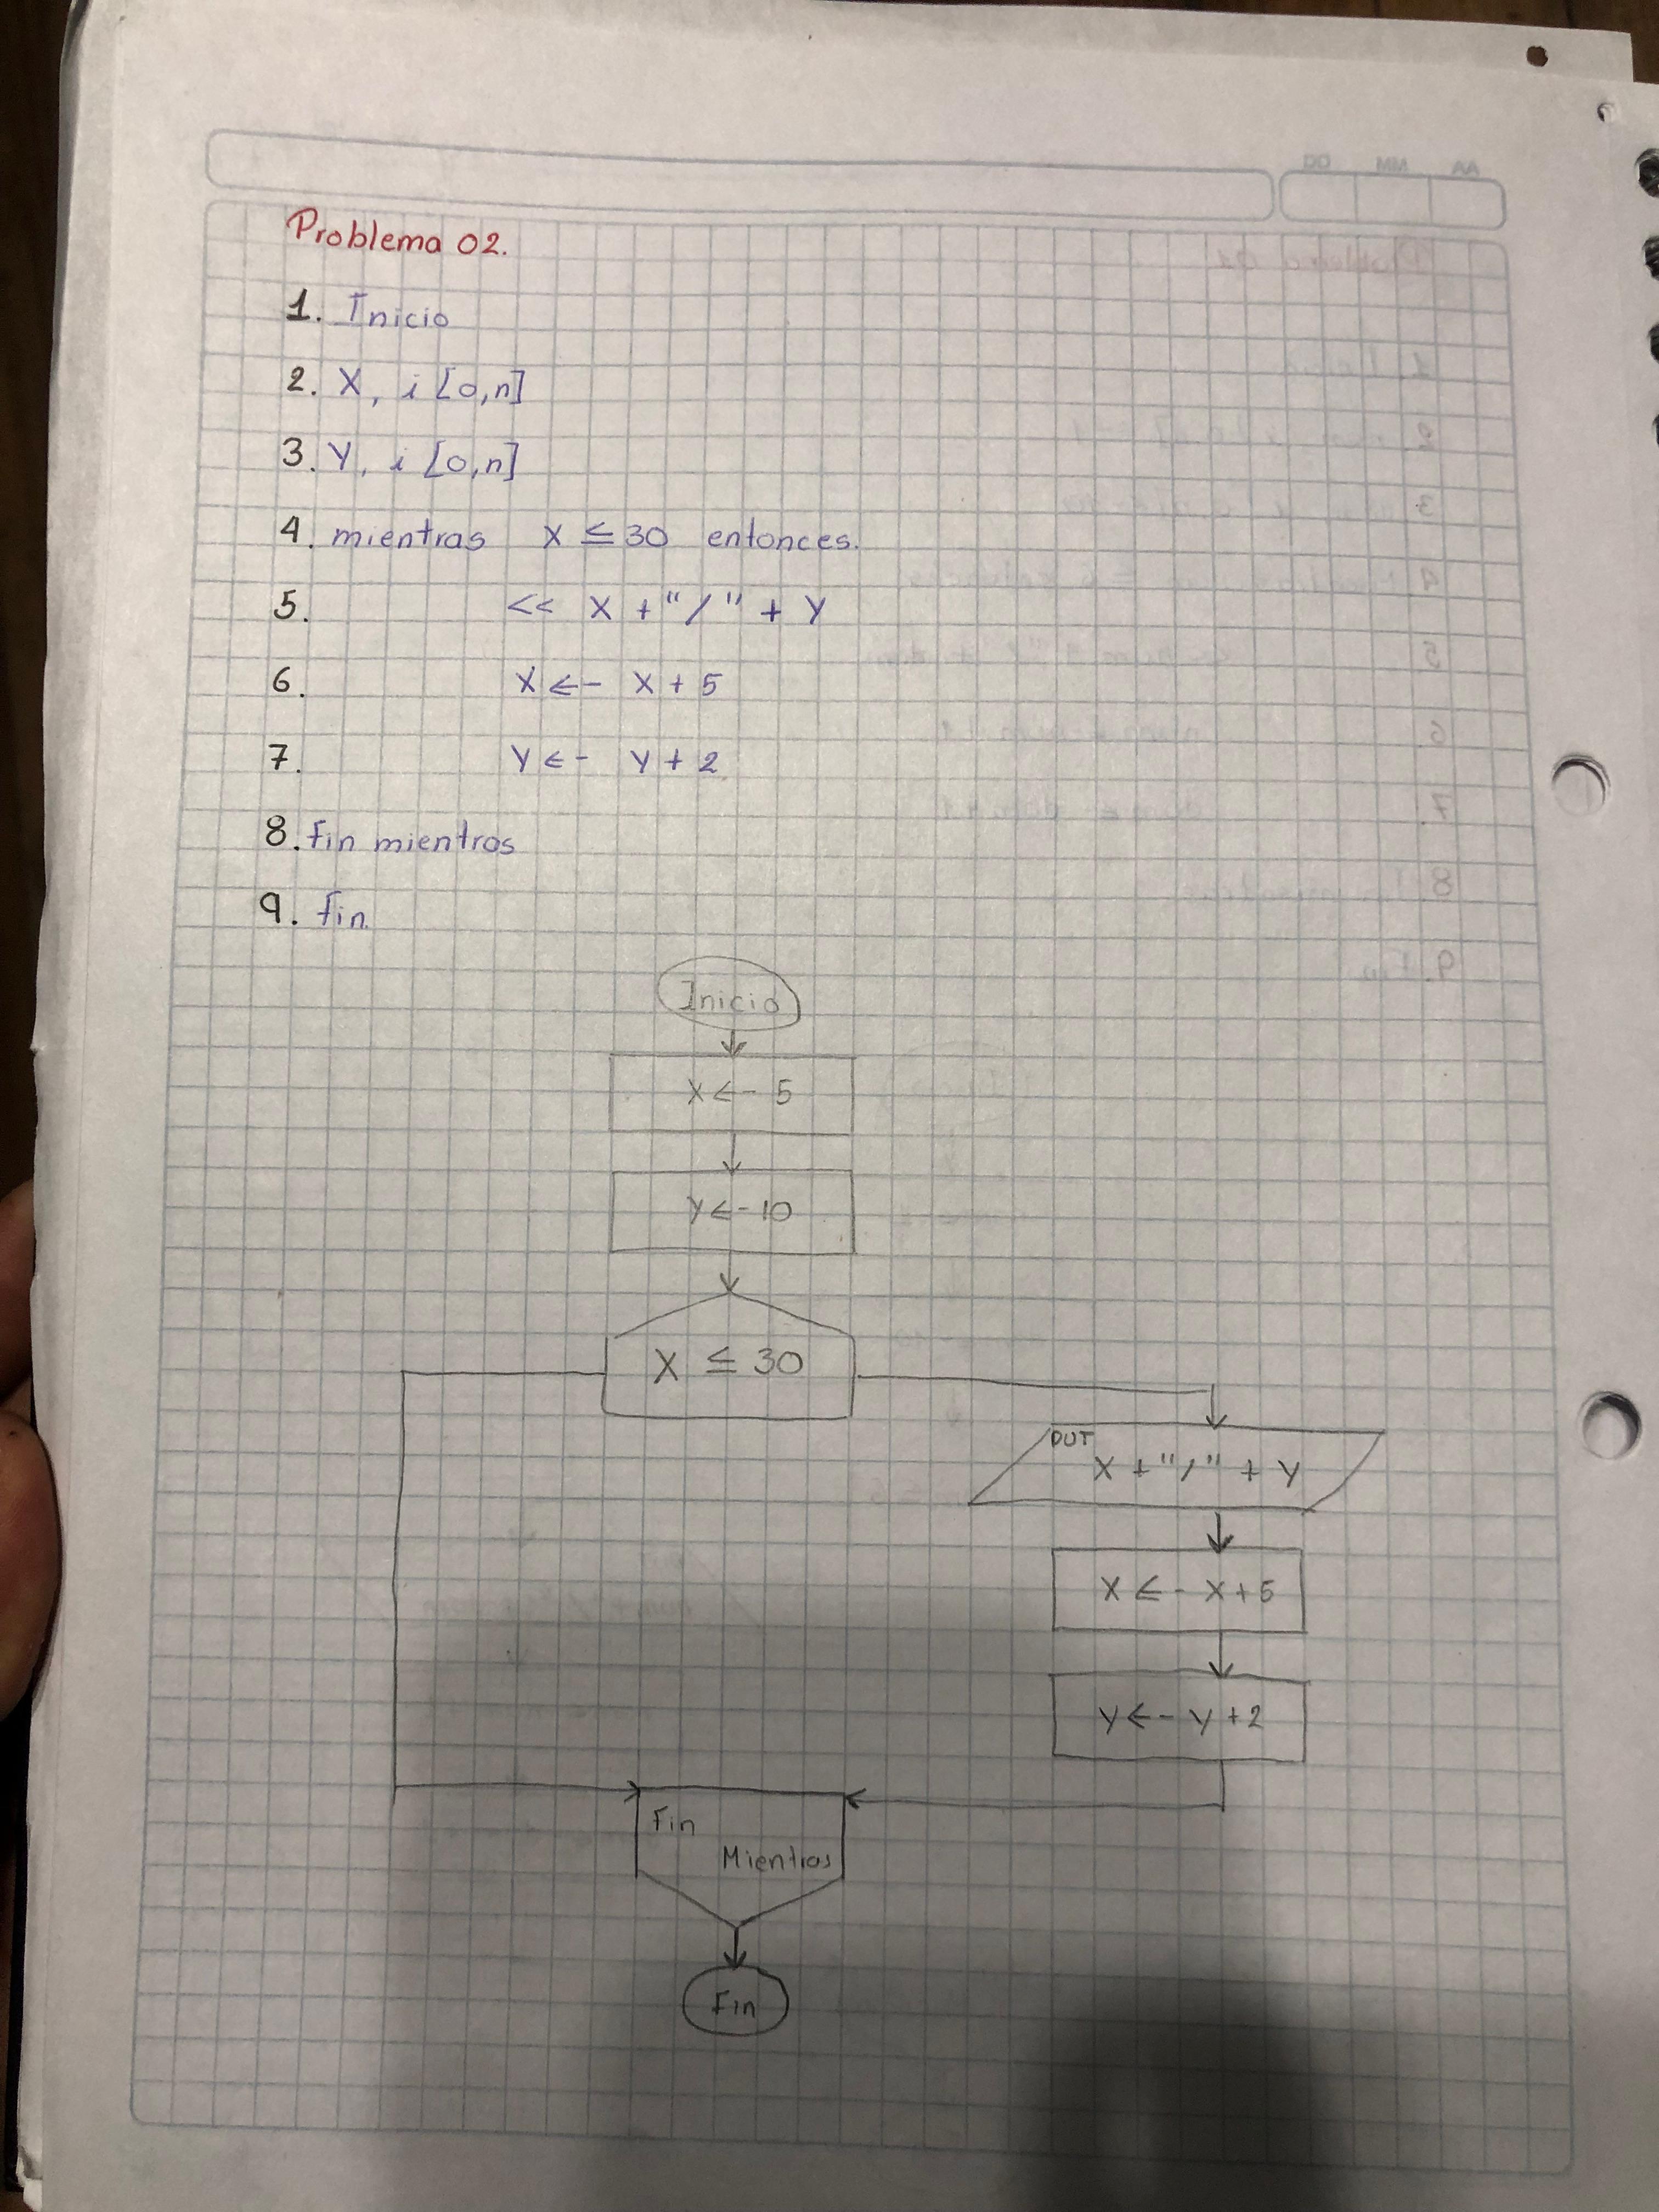 Problema 02.
1. Inicio
2. X, i [0,n]
3. Y, i [0,n]
4. mientras X ≤ 30 entonces.
5. << X + "/" + Y
6. X <- X + 5
7. Y <- Y + 2
8. Fin mientras
9. fin.
Inicio
X <- 5
Y <- 10
X ≤ 30
OUT
X + "/" + Y
X <- X + 5
Y <- Y + 2
Fin
Mientras
Fin